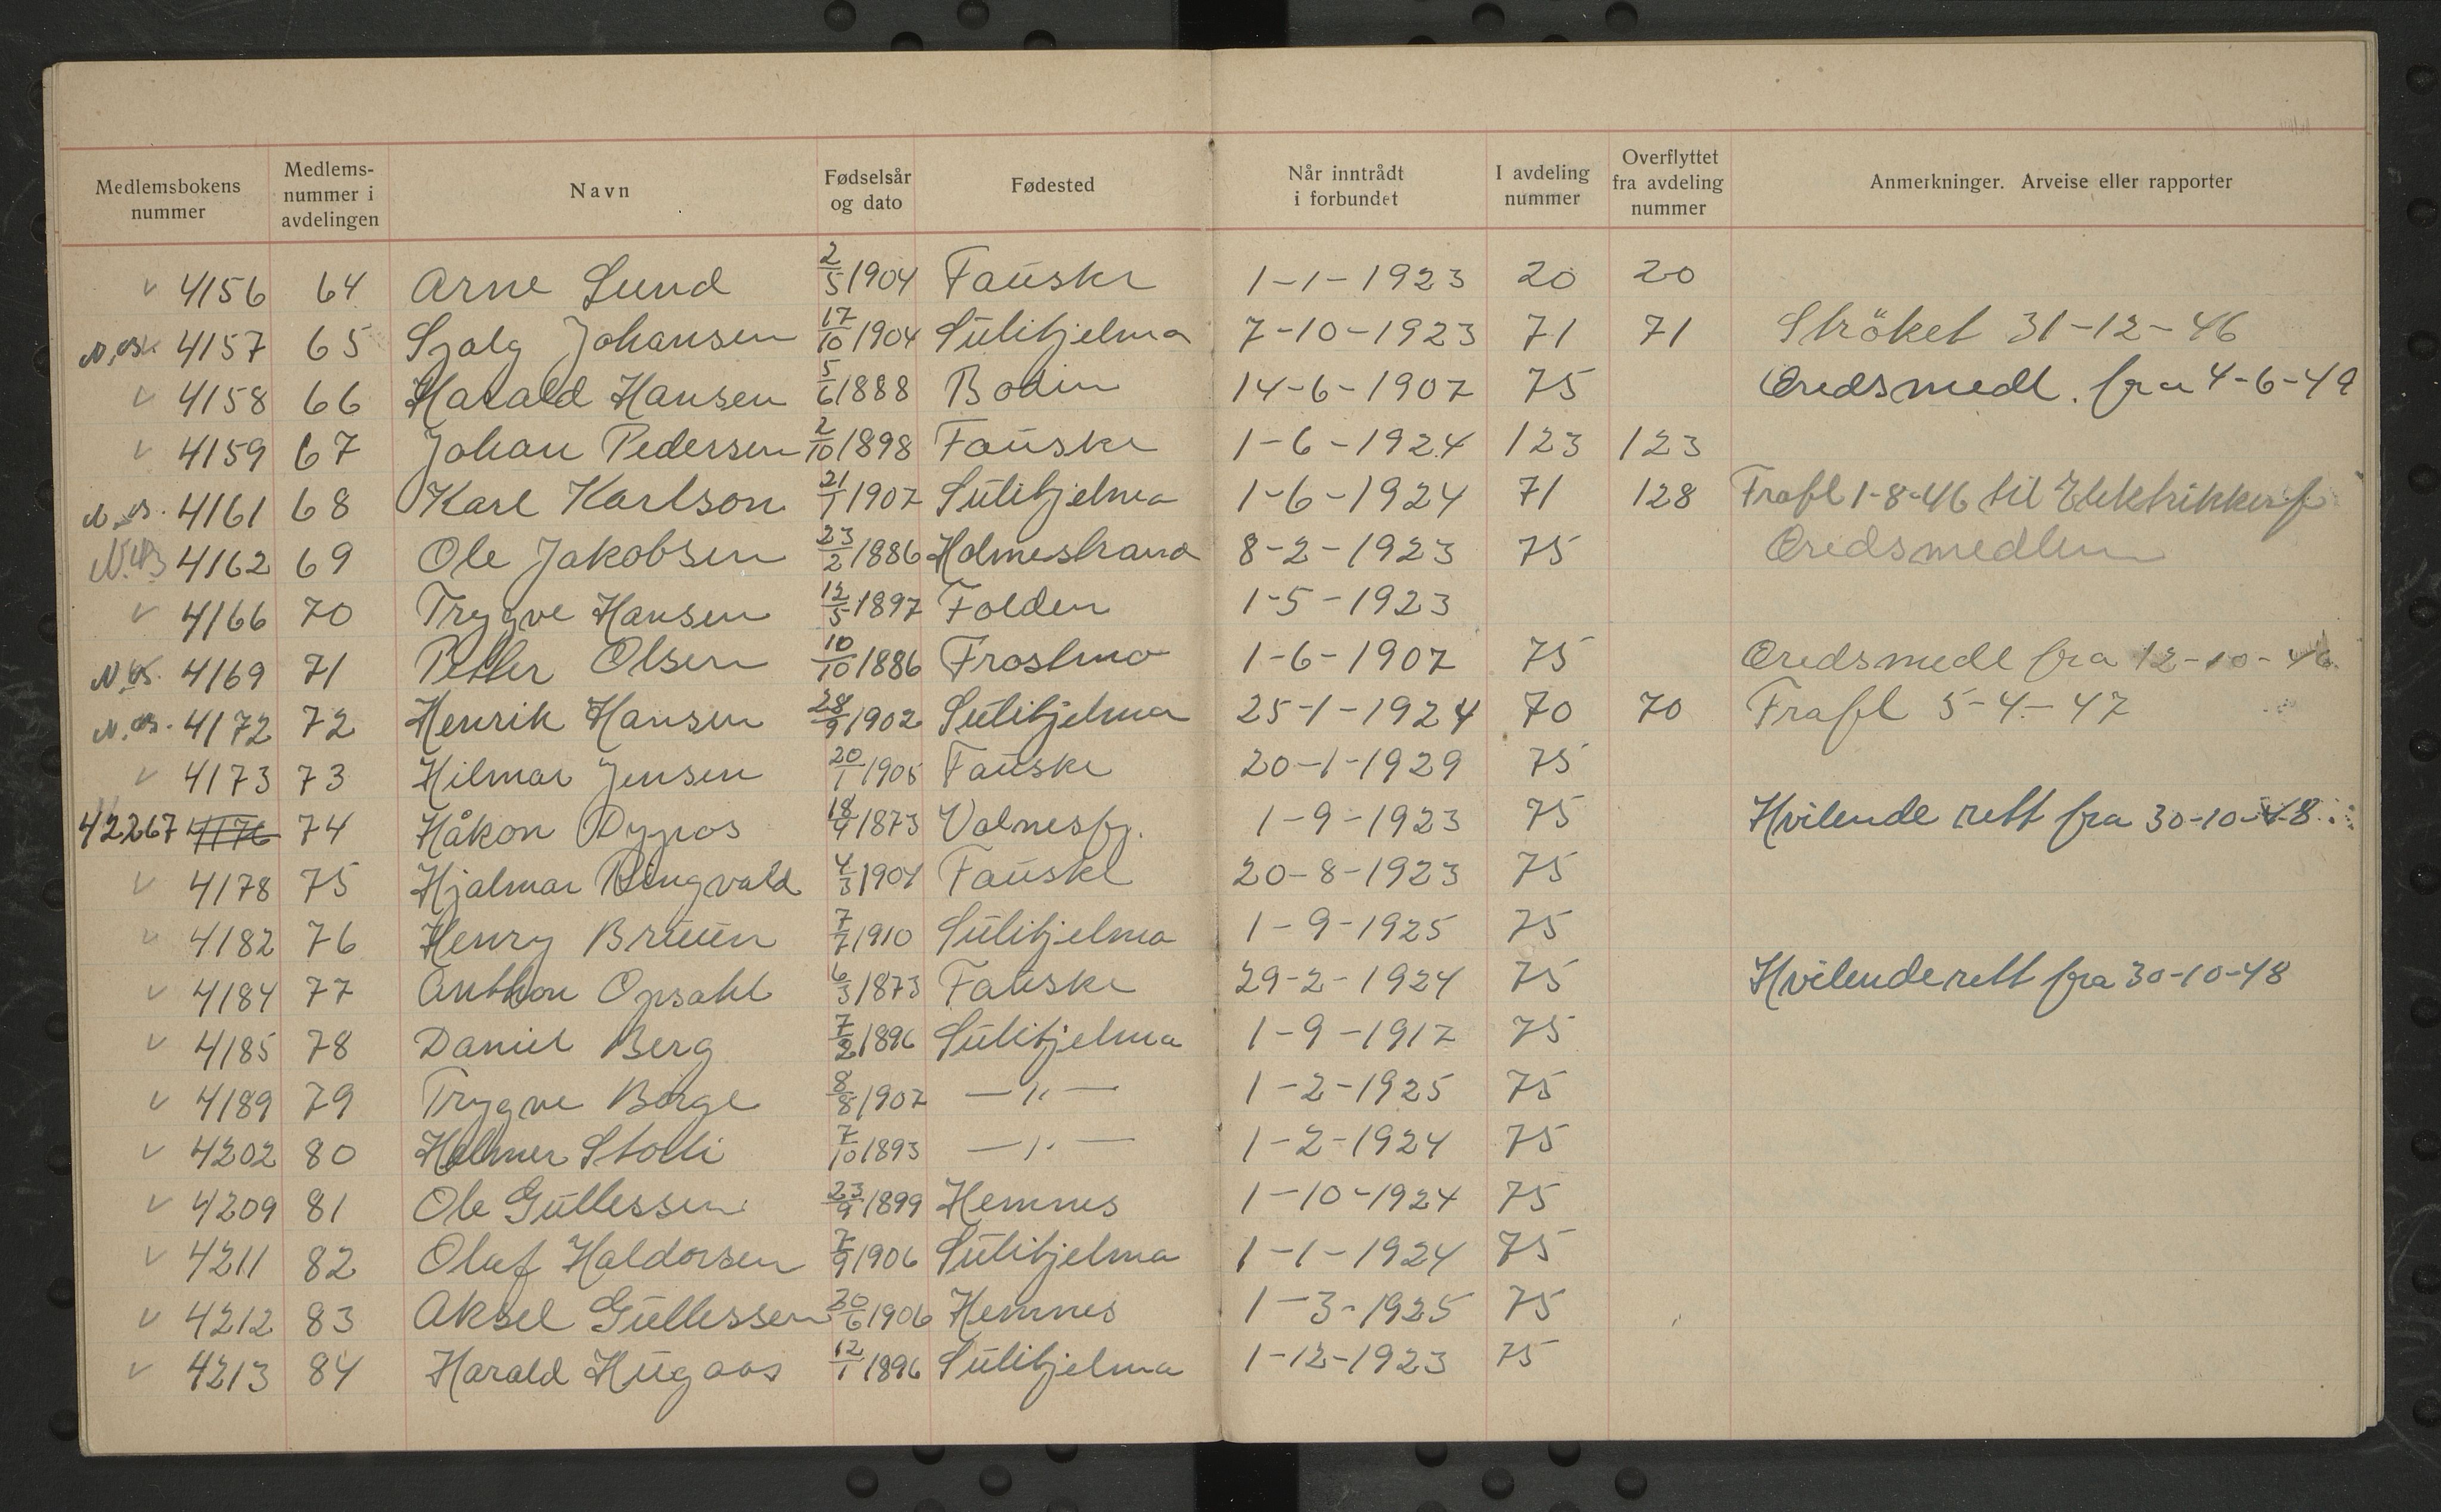 Medlemsbokens nummer | Medlemsnummer i avdelingen | Navn | Fødselsår og dato | Fødested | Når inntrådt i forbundet | I avdeling nummer | Overflyttet fra avdeling nummer | Anmerkninger. Arveise eller rapporter
4156 64 Arne Lund 2/5 1904 Fauske 1-1-1923 20 20
4157 65 Johansen 17/10 1904 Sulitjelma 7-10-1923 71 71 Ströket 31-12-46
4158 66 Harald Hansen 5/6 1888 Bodin 14-6-1907 75 Æredsmedl. fra 4-6-49
4159 67 Johan Pedersen 2/10 1898 Fauske 1-6-1924 123 123
4161 68 Karl Karlson 21/1 1907 Sulitjelma 1-6-1924 71 128 Frafl 1-8-46 til
4162 69 Ole Jakobsen 23/2 1886 Holmestrand 8-2-1923 75 Æredsmedlem
4166 70 Trygve Hansen 12/5 1897 Folden 1-5-1923
4169 71 Petter Olsen 10/10 1886 Frostmo 1-6-1907 75 Æredsmedl fra 12-10-46
4172 72 Henrik Hansen 28/9 1902 Sulitjelma 25-1-1924 70 70 Frafl 5-4-47
4173 73 Hilmar Jensen 20/1 1905 Fauske 20-1-1929 75
42267 4176 74 Håkon Dypos 1873 Valnesfj. 1-9-1923 75 Hvilende rett fra 30-10-48
4178 75 Hjalmar Ringvald 4/3 1904 Fauske 20-8-1923 75
4182 76 Henry Bruun 7/7 1910 Sulitjelma 1-9-1925 75
4184 77 Anthon Opsahl 6/3 1873 Fauske 29-2-1924 75 Hvilende rett fra 30-10-48
4185 78 Daniel Berg 7/2 1896 Sulitjelma 1-9-1917 75
4189 79 Trygve Børge 8/8 1907 —"— 1-2-1925 75
4202 80 Helmer Stolli 7/10 1893 —"— 1-2-1924 75
4209 81 Ole Gullessen 23/9 1899 Hemnes 1-10-1924 75
4211 82 Olaf Haldorsen 7/9 1906 Sulitjelma 1-1-1924 75
4212 83 Aksel Gullessen 1906 Hemnes 1-3-1925 75
4213 84 Harald Hugaas 12/1 1896 Sulitjelma 1-12-1923 75